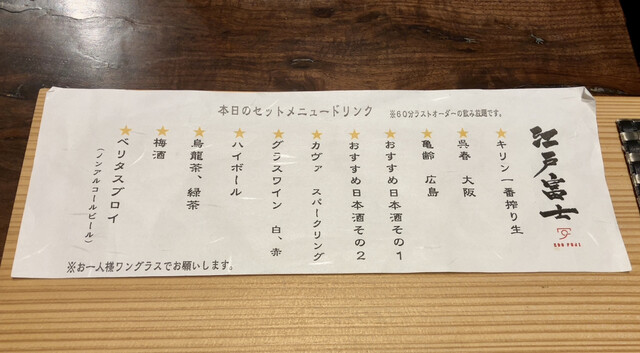 本日のセットメニュードリンク
※60分ラストオーダーの飲み放題です。
江戸富士
EDO FUJI
★キリン一番搾り生
★呉春 大阪
★亀齢 広島
★おすすめ日本酒その1
★おすすめ日本酒その2
★カヴァ スパークリング
★グラスワイン 白、赤
★ハイボール
★烏龍茶、緑茶
★梅酒
★ベリタスブロイ
（ノンアルコールビール）
※お一人様ワングラスでお願いします。